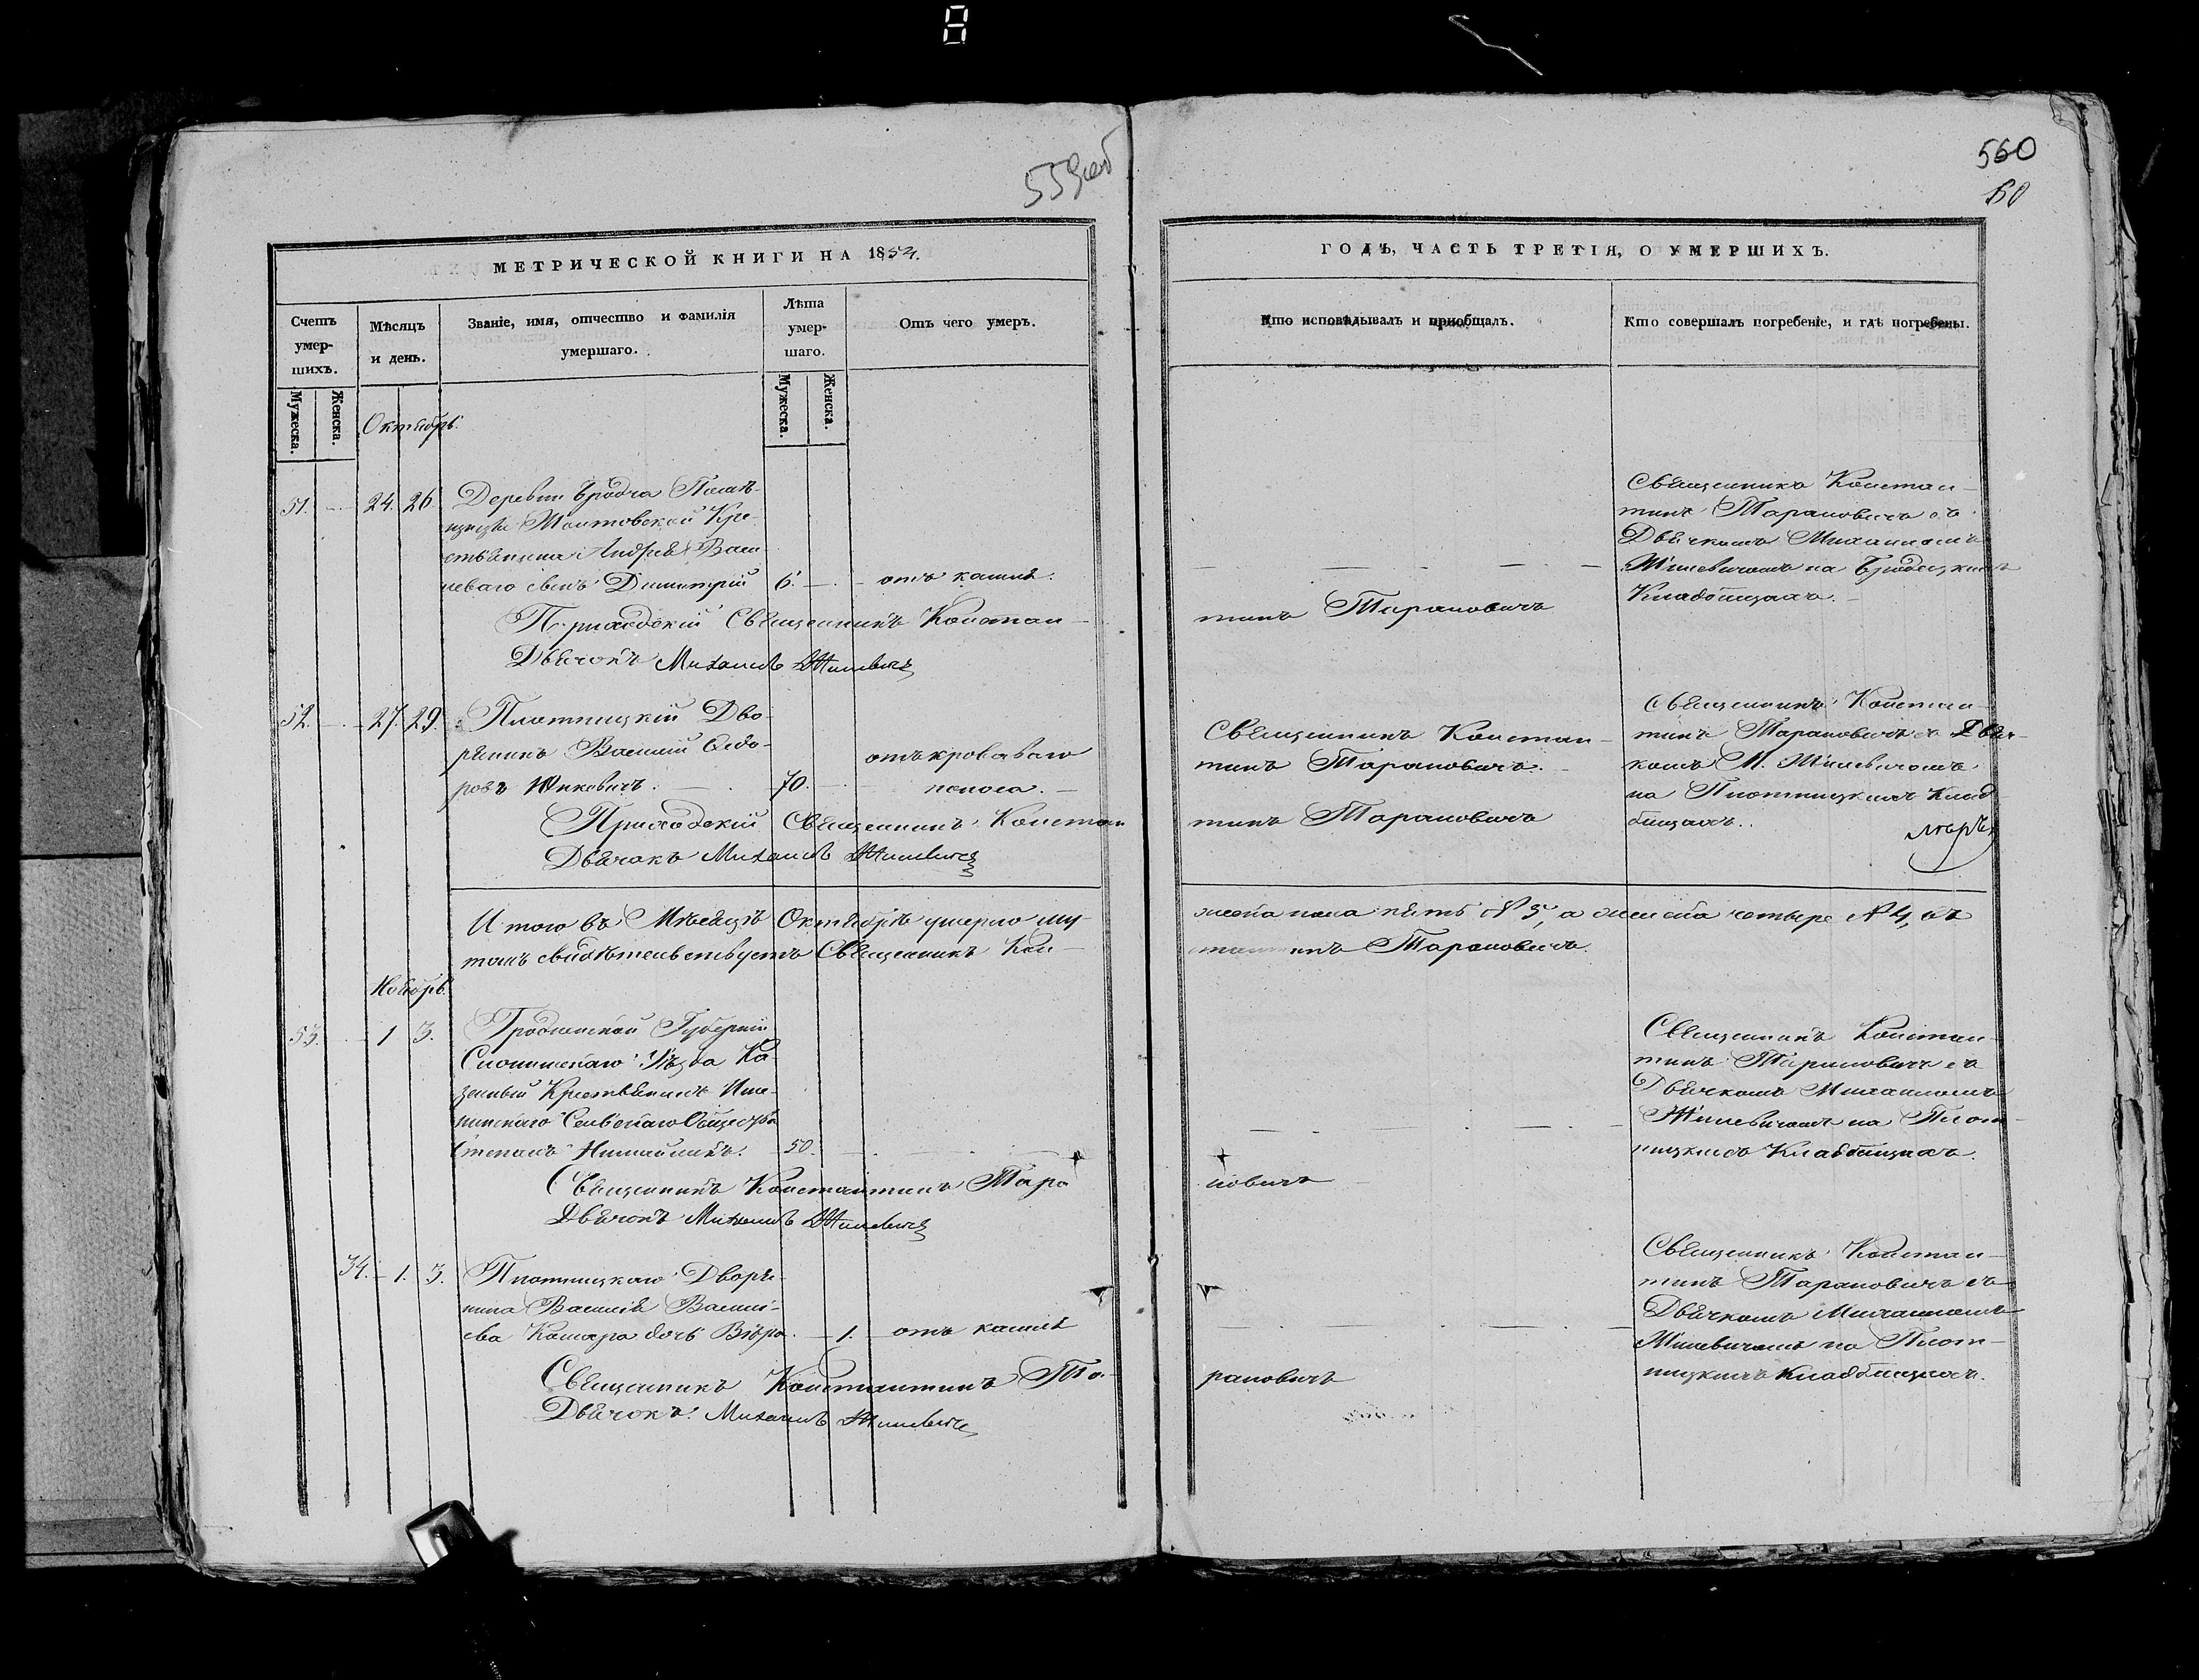 559об
560
60
МЕТРИЧЕСКОЙ КНИГИ НА 1854.
Счетъ умер-шихъ.
Мужеска.
Женска.
Мѣсяцъ и день.
Званіе, имя, отчество и фамилія умершаго.
Лѣта умер-шаго.
Мужеска.
Женска.
Отъ чего умеръ.
ГОДЪ, ЧАСТЬ ТРЕТІЯ, О УМЕРШИХЪ.
Кто исповѣдывалъ и пріобщалъ.
Кто совершалъ погребеніе, и гдѣ погребены.
Октябрь.
51. 24. 26
Деревни Бродча Помѣ-
щицы Кре-
стьянина Андрея Васи
леваго сынъ Димитрій 6. отъ кашля.
Священникъ Констан-
тинъ Тарановичъ съ
Дьячкомъ Михаиломъ
Жилевичомъ на Бродецкихъ
Кладбищахъ.
Приходскій Священникъ Констан-
тинъ Тарановичъ
Дьячокъ Михаилъ Жилевичъ
52. 27. 29.
Плотницкій Дво-
рянинъ Василій Ѳедо-
ровъ Юнкевичъ. 70.
отъ кроваваго
поноса.
Священникъ Констан-
тинъ Тарановичъ.
Священникъ Констан-
тинъ Тарановичъ съ Дьяч-
комъ М. Жилевичомъ
на Плотницкихъ Клад-
бищахъ.
Приходскій Священникъ Констан
тинъ Тарановичъ
Дьячокъ Михаилъ Жилевичъ
Итого въ Мѣсяцѣ Октябрѣ умерло му-
жеска пола пять № 5, а женска четыре № 4, въ
томъ свидѣтельствуетъ Священникъ Кон-
стантинъ Тарановичъ.
Ноябрь.
53. 1 3.
Гродненской Губерніи
Слонимскаго Уѣзда Ка-
зенный Крестьянинъ
Сельскаго Общества
Степанъ 50.
Священникъ Констан-
тинъ Тарановичъ съ
Дьячкомъ Михаиломъ
Жилевичомъ на Плот-
ницкихъ Кладбищахъ.
Священникъ Константинъ Тара
новичъ
Дьячокъ Михаилъ Жилевичъ
34. 1. 3.
Плотницкаго Дворя-
нина Василія Василь-
ева Комара дочь Вѣра. 1. отъ кашля
Священникъ Констан-
тинъ Тарановичъ съ
Дьячкомъ Михаиломъ
Жилевичомъ на Плот-
ницкихъ Кладбищахъ.
Священникъ Константинъ Та-
рановичъ
Дьячокъ Михаилъ Жилевичъ